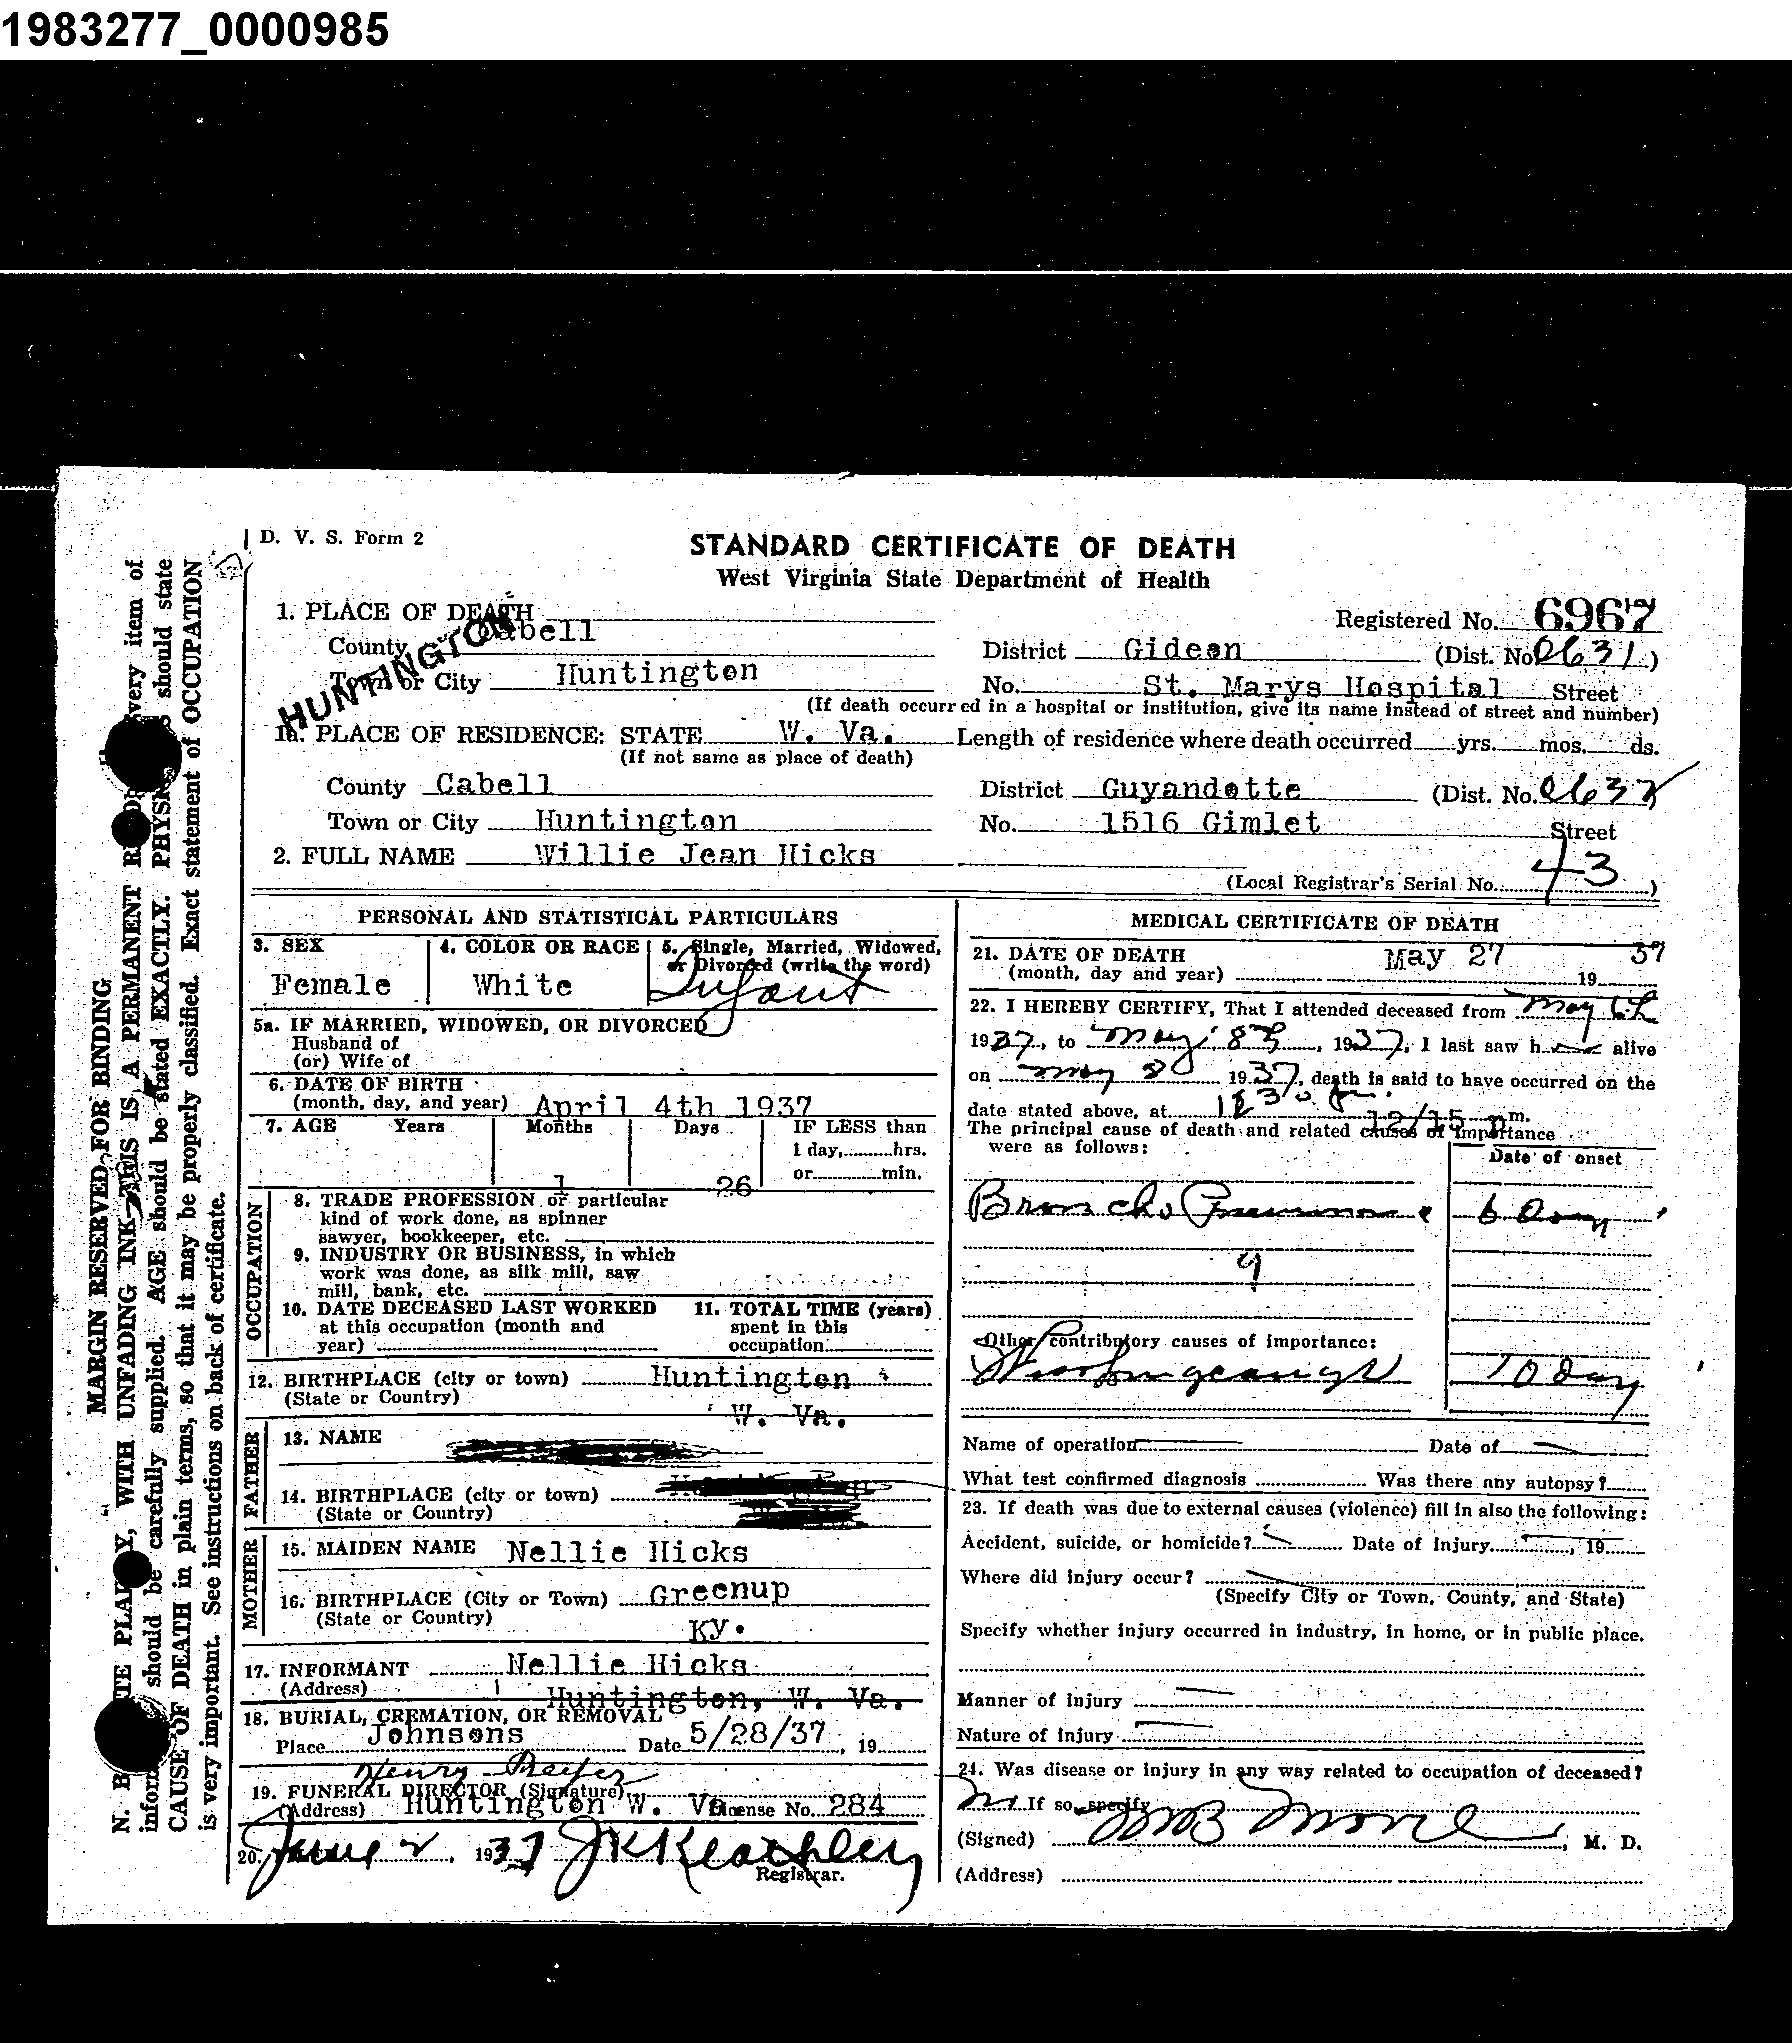 1983277_0000985
D. V. S. Form 2
STANDARD CERTIFICATE OF DEATH
West Virginia State Department of Health
1. PLACE OF DEATH
Registered No. 6967
County Cabell
District Gideon (Dist. No. 0631)
HUNTINGTON
Town or City Huntington
No. St. Marys Hospital Street
(If death occurred in a hospital or institution, give its name instead of street and number)
1a. PLACE OF RESIDENCE: STATE W. Va. Length of residence where death occurred yrs. mos. ds.
(If not same as place of death)
County Cabell District Guyandotte (Dist. No. 0632
Town or City Huntington No. 1516 Gimlet Street
2. FULL NAME Willie Jean Hicks
(Local Registrar's Serial No. 43)
PERSONAL AND STATISTICAL PARTICULARS
3. SEX
Female
4. COLOR OR RACE
White
5. Single, Married, Widowed,
or Divorced (write the word)
Infant
5a. IF MARRIED, WIDOWED, OR DIVORCED
Husband of
(or) Wife of
6. DATE OF BIRTH
(month, day, and year) April 4th 1937
7. AGE Years Months Days IF LESS than
1 day, hrs.
or min.
1 26
OCCUPATION
8. TRADE PROFESSION or particular
kind of work done, as spinner
sawyer, bookkeeper, etc.
9. INDUSTRY OR BUSINESS, in which
work was done, as silk mill, saw
mill, bank, etc.
10. DATE DECEASED LAST WORKED
at this occupation (month and
year)
11. TOTAL TIME (years)
spent in this
occupation
12. BIRTHPLACE (city or town) Huntington
(State or Country)
W. Va.
FATHER
13. NAME
14. BIRTHPLACE (city or town)
(State or Country)
MOTHER
15. MAIDEN NAME Nellie Hicks
16. BIRTHPLACE (City or Town) Greenup
(State or Country)
Ky.
17. INFORMANT Nellie Hicks
(Address)
Huntington, W. Va.
18. BURIAL, CREMATION, OR REMOVAL
Place Johnsons Date 5/28/37, 19
Henry
19. FUNERAL DIRECTOR (Signature)
(Address) Huntington W. Va. License No. 284
20. June 2, 1937 J K Keathley
Registrar.
MEDICAL CERTIFICATE OF DEATH
21. DATE OF DEATH
(month, day and year) May 27 19 37
22. I HEREBY CERTIFY, That I attended deceased from May 6th
1937, to May 8th, 1937, I last saw h alive
on May 8 1937, death is said to have occurred on the
date stated above, at 12/15 p m.
The principal cause of death and related causes of importance
were as follows:
Date of onset
Broncho Pneumonia 6 Day
9
Other contributory causes of importance:
10 day
Name of operation Date of
What test confirmed diagnosis Was there any autopsy?
23. If death was due to external causes (violence) fill in also the following:
Accident, suicide, or homicide? Date of injury , 19
Where did injury occur?
(Specify City or Town, County, and State)
Specify whether injury occurred in industry, in home, or in public place.
Manner of injury
Nature of injury
24. Was disease or injury in any way related to occupation of deceased?
no If so, specify
(Signed) , M. D.
(Address)
MARGIN RESERVED FOR BINDING
N. B. WRITE PLAINLY, WITH UNFADING INK—THIS IS A PERMANENT RECORD. Every item of
information should be carefully supplied. AGE should be stated EXACTLY. PHYSICIANS should state
CAUSE OF DEATH in plain terms, so that it may be properly classified. Exact statement of OCCUPATION
is very important. See instructions on back of certificate.